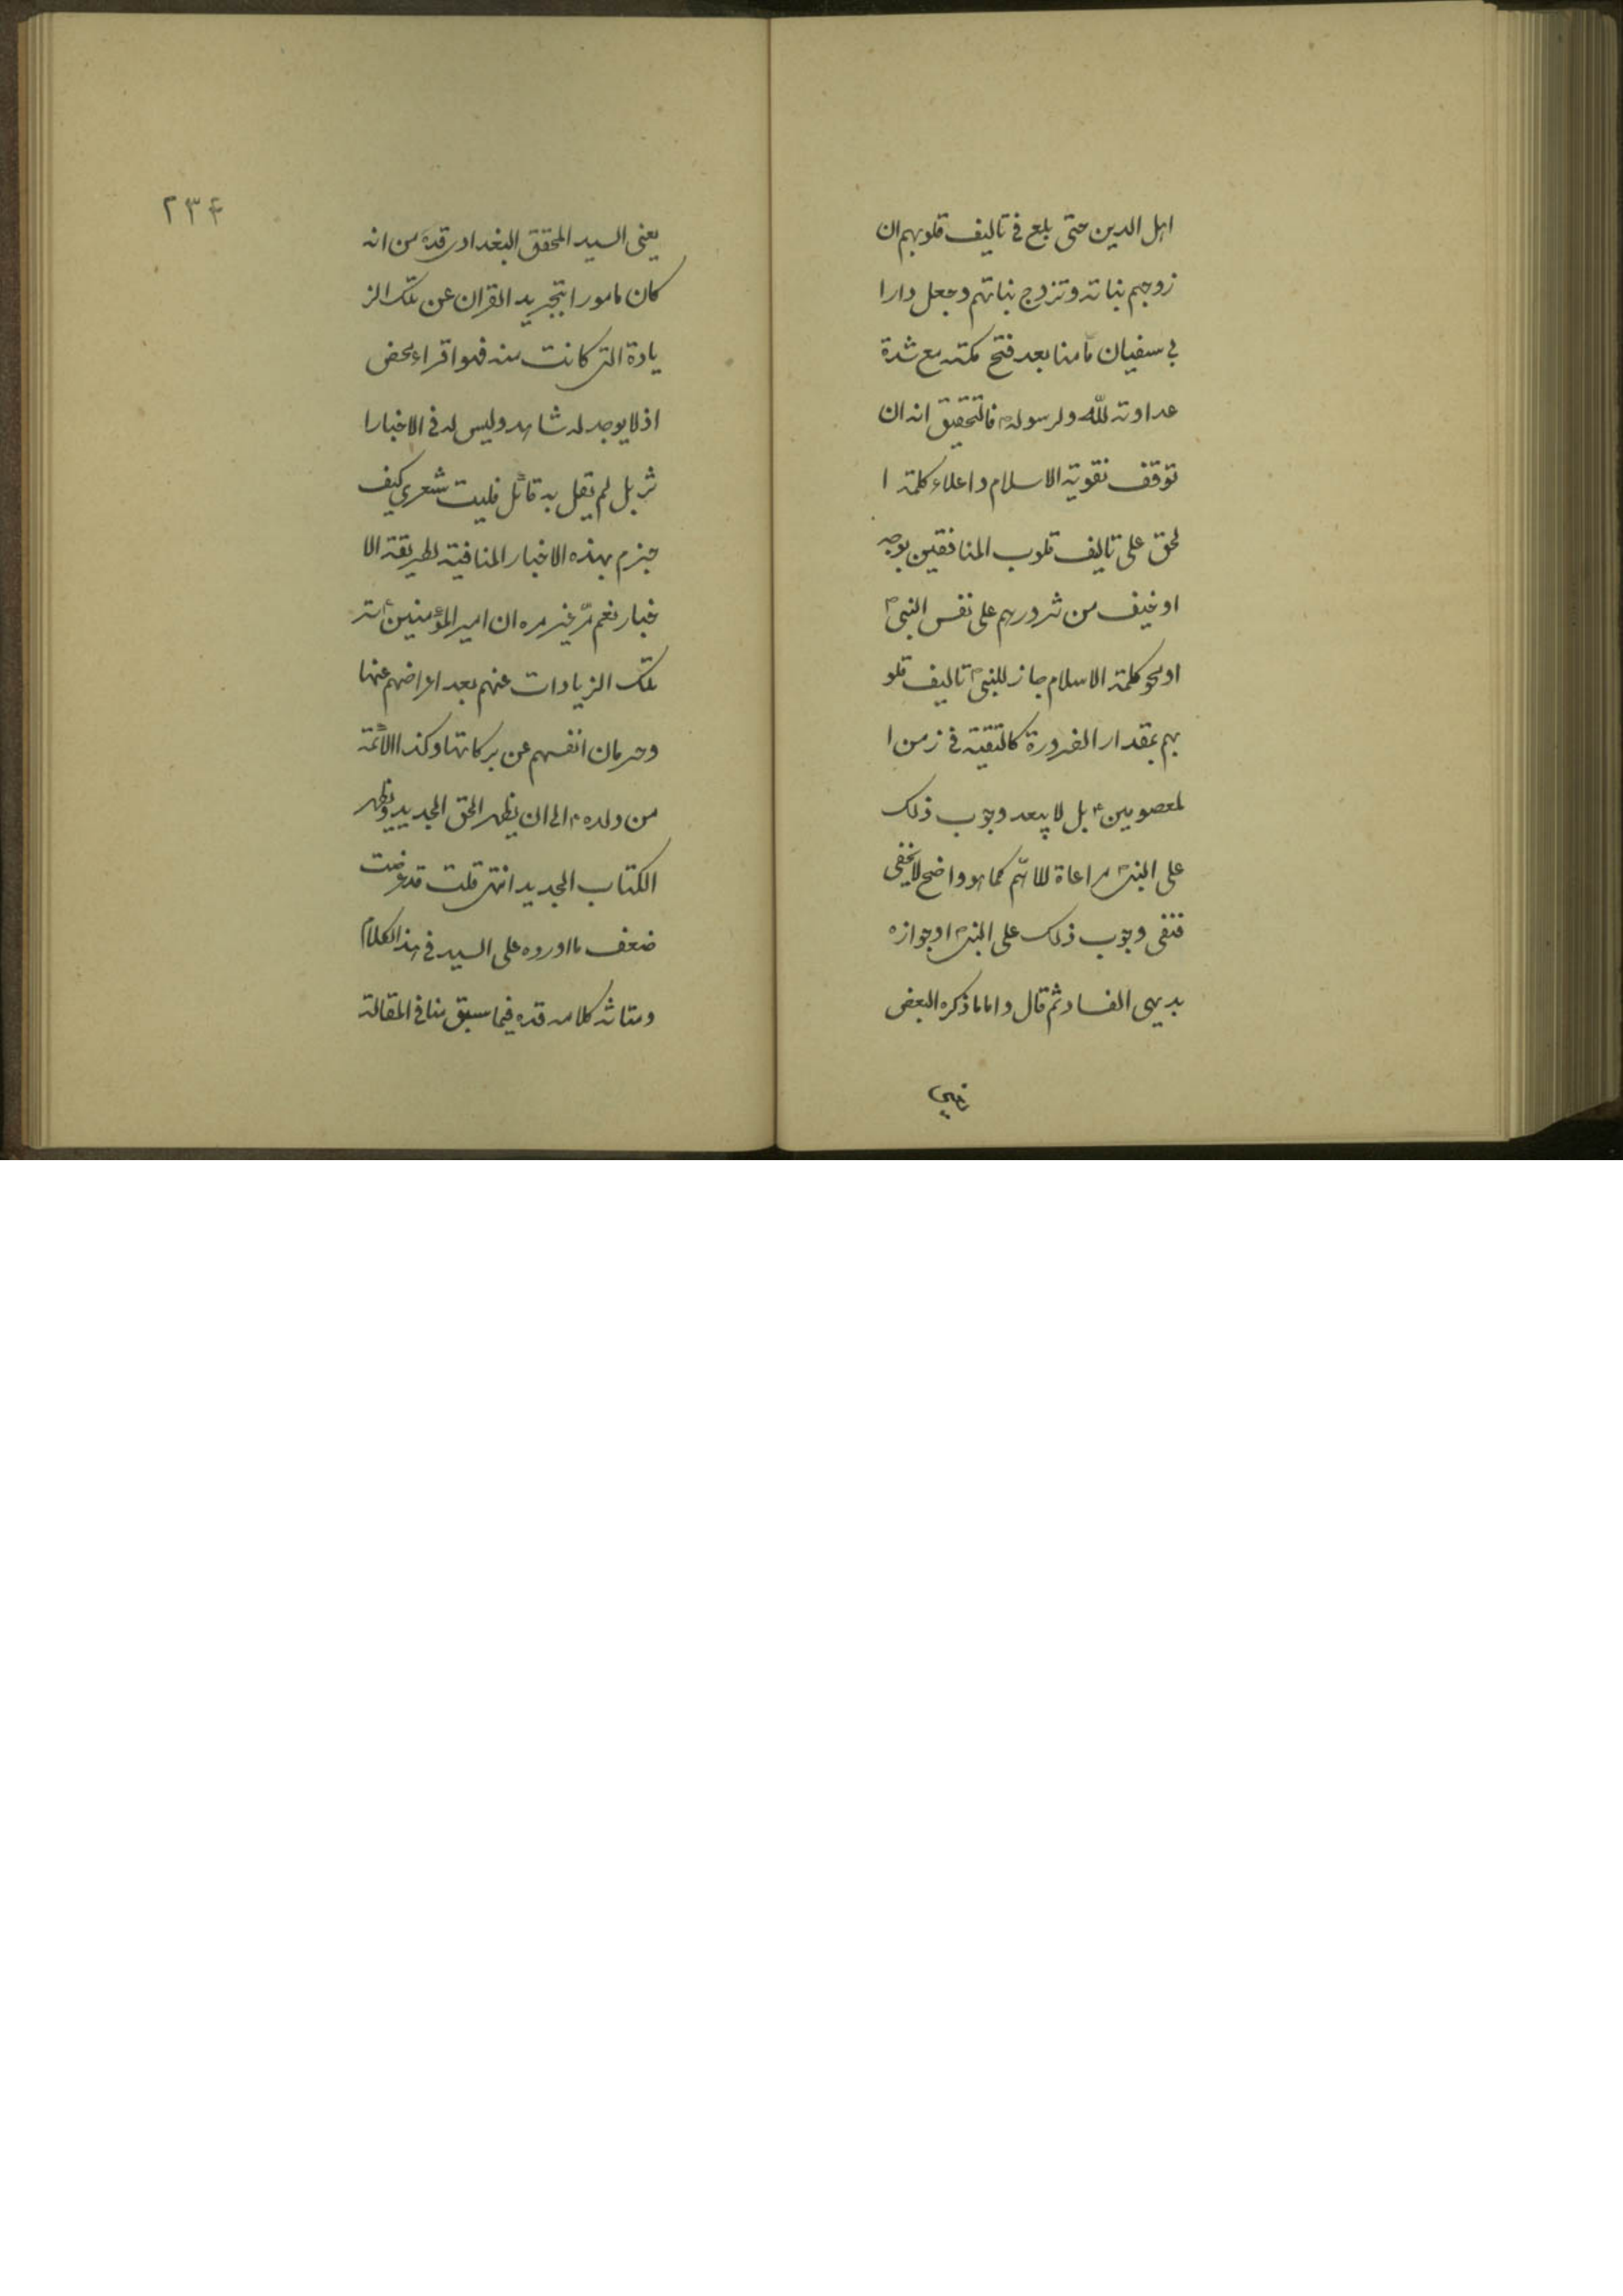 اهل الدين حتى بلع في تاليف قلوبهم ان
زوجهم بناته وتزوج بناتهم وجعل دار ا
بي سفيان مأمنا بعد فتح مكته مع شدة
عداوته للّه ولرسوله ص فالتحقيق انه ان
توقف تقوية الاسلام واعلاء كلمة ا
لحق على تاليف قلوب المنافقين بوجه
او خيف من شرورهم على نفس النبي ص
او نحو كلمة الاسلام جاز للنبي ص تاليف قلو
بهم بمقدار الضرورة كالتقية في زمن ا
لمعصومين ع بل لا يبعد وجوب ذلك
على النبي ص مراعاة للاهّم كما هو واضح لا يخفى
فنفى وجوب ذلك على النبي ص او جوازه
بديهي الفساد ثم قال واما ما ذكره البعض
٢٣۴
يعني السيد المحقق البغدادي قده من انه
كان مامورا بتجريد القران عن تلك الز
يادة التي كانت منه فهو افتراء محض
اذ لا يوجد له شاهد وليس له في الاخبار ا
ثر بل لم يقل به قائل فليت شعري كيف
جزم بهذه الاخبار المنافية لطريقة الا
خبار نعم مرّ غير مره ان امير المؤمنين ع ستر
تلك الزيادات عنهم بعد اعراضهم عنها
وحرمان انفسهم عن بركاتها وكذا الائمة
من ولده ع الى ان يظهر الحق الجديد ويظهر
الكتاب الجديد انتهى قلت قد عرفت
ضعف ما اورده على السيد في هذا الكلام
ومتانة كلامه قده فيما سبق منا في المقالة